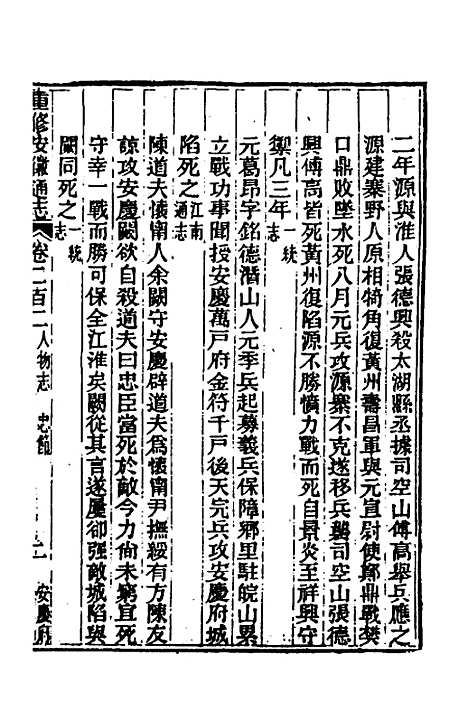 二年源與淮人張德興殺太湖縣丞據司空山傅高舉兵應之
源建寨野人原相犄角復黃州壽昌軍與元宣尉使鄭鼎戰樊
口鼎敗墜水死八月元兵攻源寨不克遂移兵襲司空山張德
興傅高皆死黃州復陷源不勝憤力戰而死自景炎至祥興守
禦凡三年一統志
元葛昂字銘德潛山人元季兵起募義兵保障鄉里駐皖山累
立戰功事聞授安慶萬戸府金符千戸後天完兵攻安慶府城
陷死之江南通志
陳道夫懷甯人余闕守安慶辟道夫爲懷甯尹撫綏有方陳友
諒攻安慶闕欲自殺道夫曰忠臣當死於敵今力尙未窮宜死
守幸一戰而勝可保全江淮矣闕從其言遂屢卻强敵城陷與
闕同死之一統志
重修安徽通志 卷二百二 人物志 忠節 安慶府